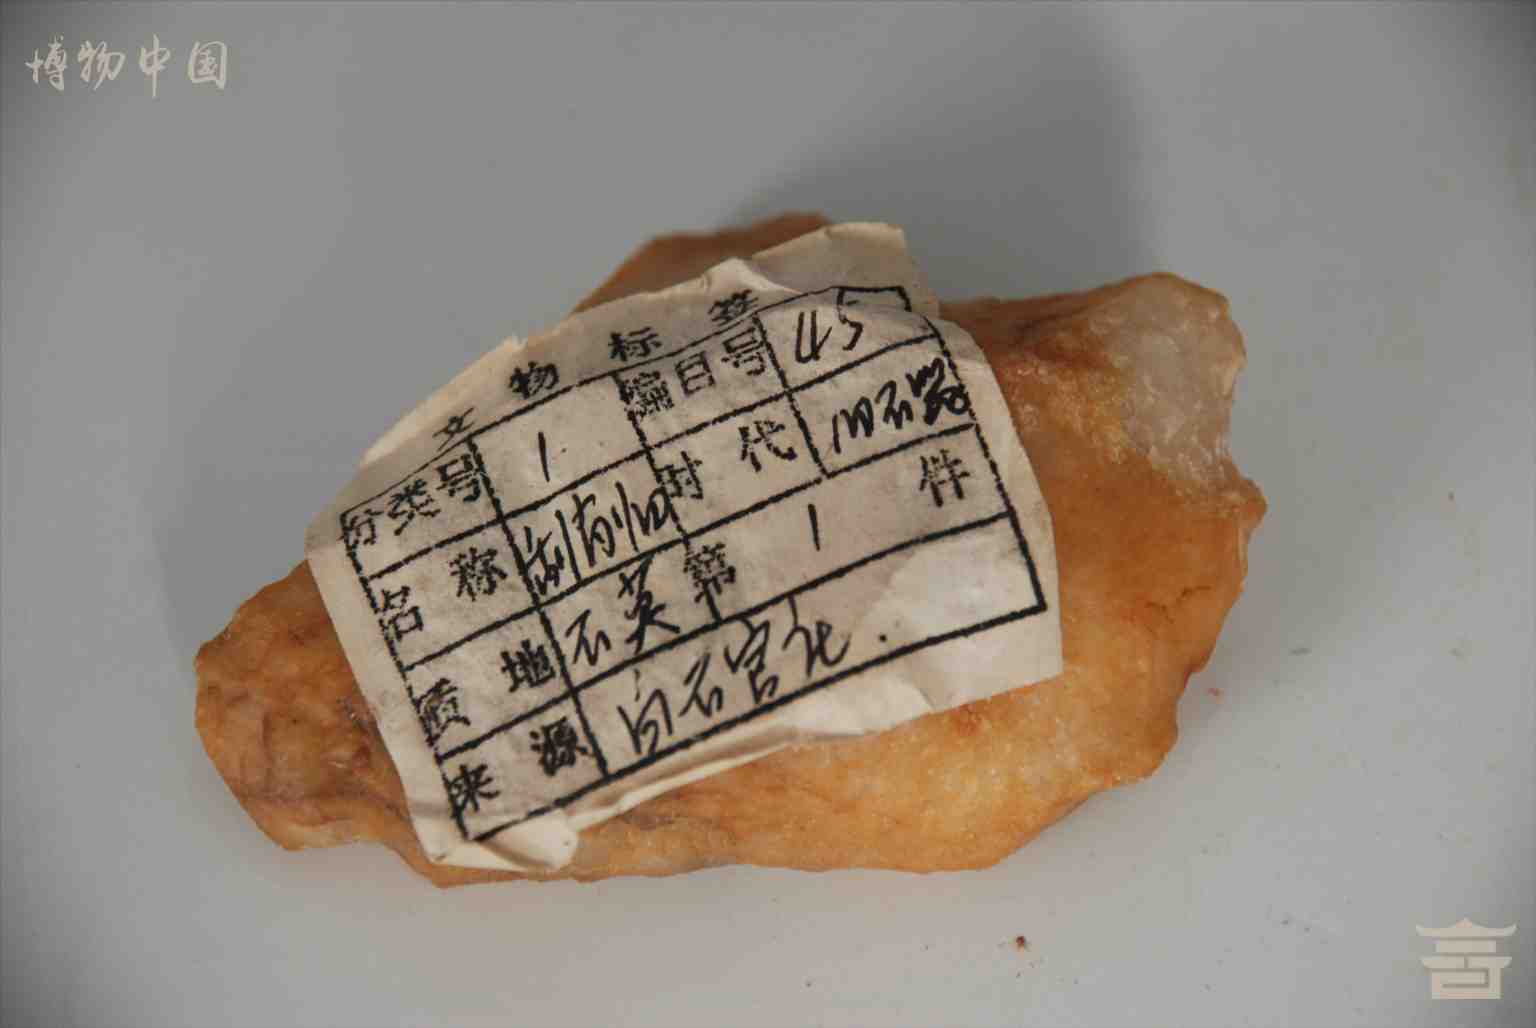 博物中国
文物标签
分类号 1 编目号 45
名称 刮削旧 时代 旧石器
质地 石英 第 1 件
来源 向石宫化.